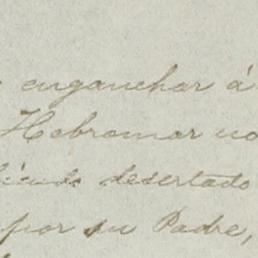 enganchar á
Hobromar no
desertado
por su Padre,